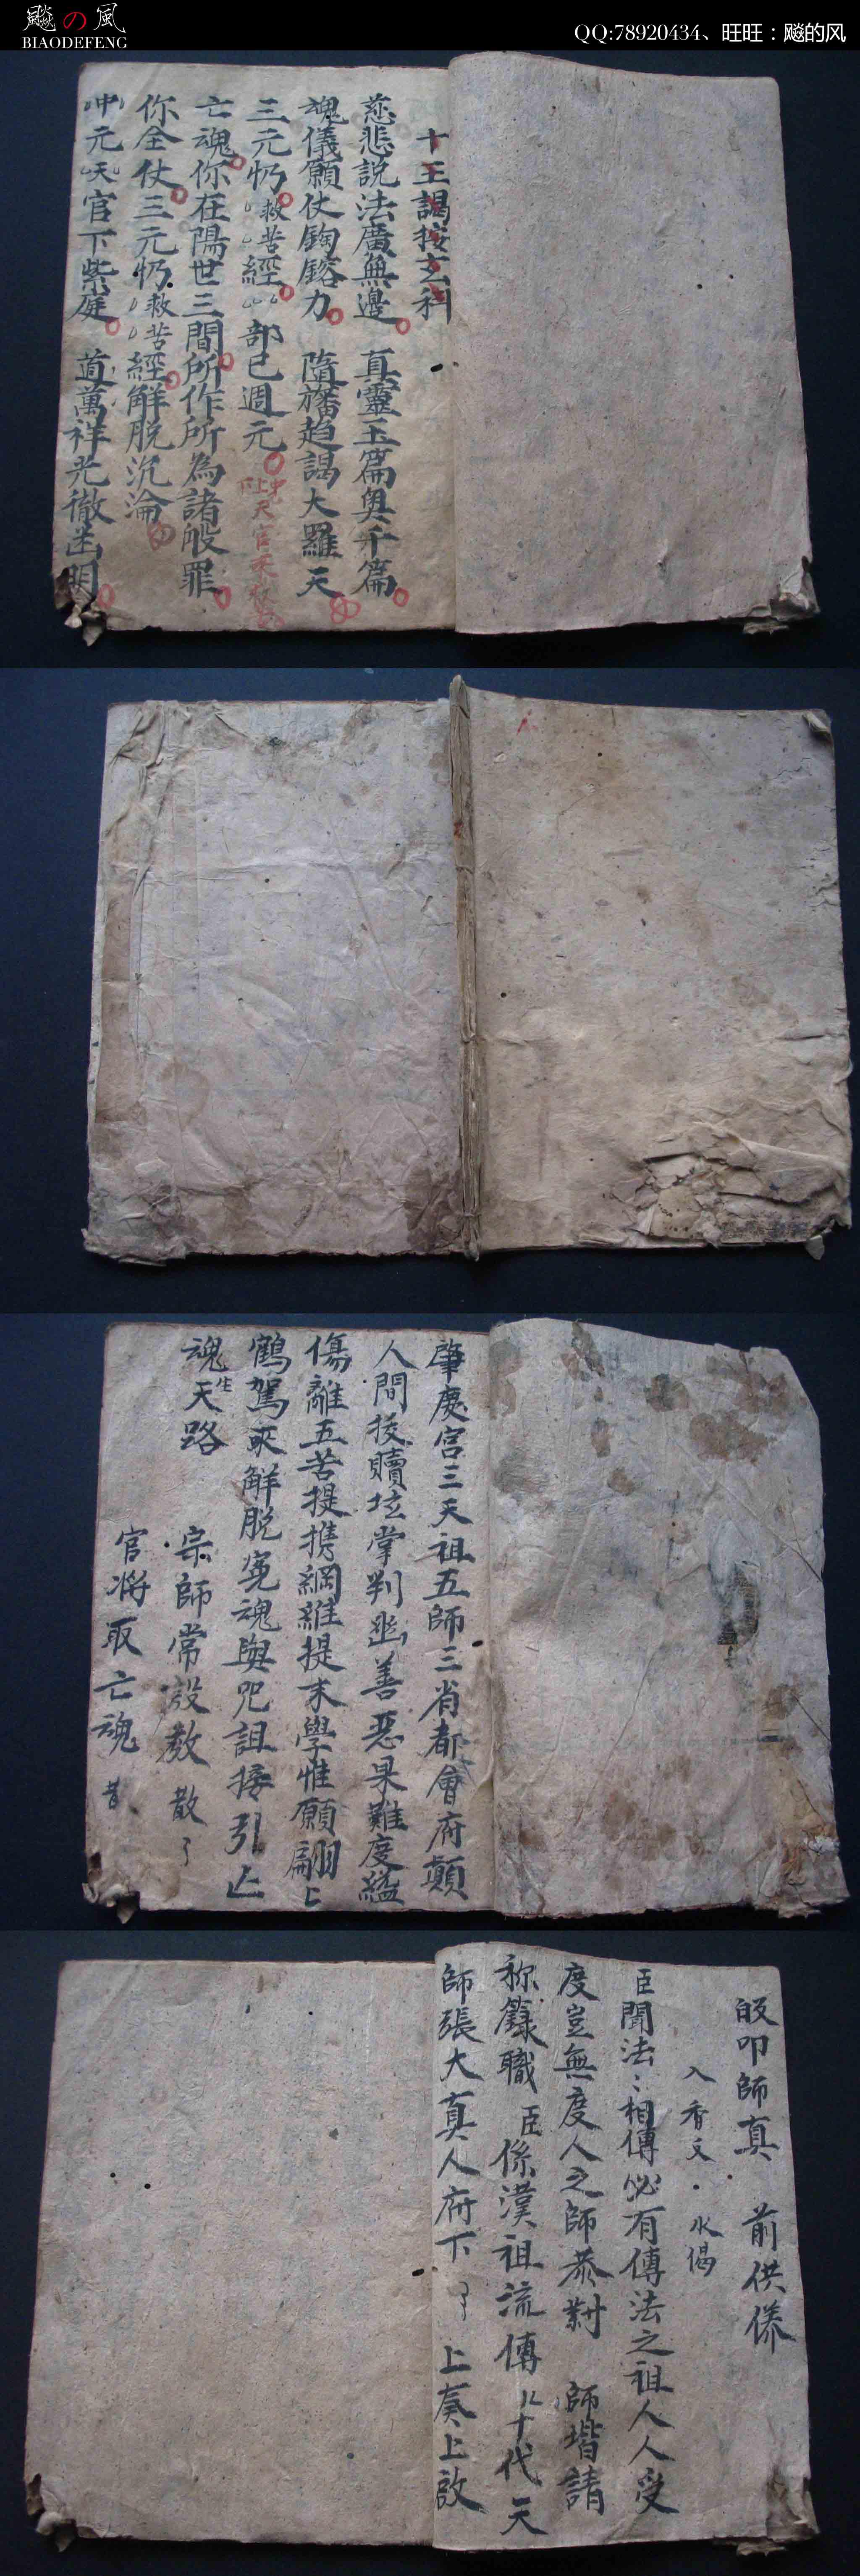 飈の風
BIAODEFENG
QQ:78920434、旺旺：飈的风
十王謁按玄科
慈悲説法廣無邊 真靈玉篇奧千篇
魂儀願仗鞫鎔力 隨旛趋謁大羅天
三元忉救苦經 部已週元
上中下天官
亡魂你在陽世三間所作所為諸般罪
你全仗三元忉救苦經解脱沉淪
冲元天官下紫庭 道萬祥光徹幽明
肇慶宮三天祖五師三省都會府顛
人間拔贖壇掌判幽善惡果難度
傷離五苦提携綱維提末學惟願翩
鶴駕來解脱冤魂與咒詛接引上
魂生天路
宗師常設教 散
官将取亡魂
皈叩師真 前供養
入香文 水偈
臣聞法：相傳必有傳法之祖人人受
度豈無度人之師恭對 師堦請
称籙職 臣係漢祖流傳 十代天
師張大真人府下 上奏上啟